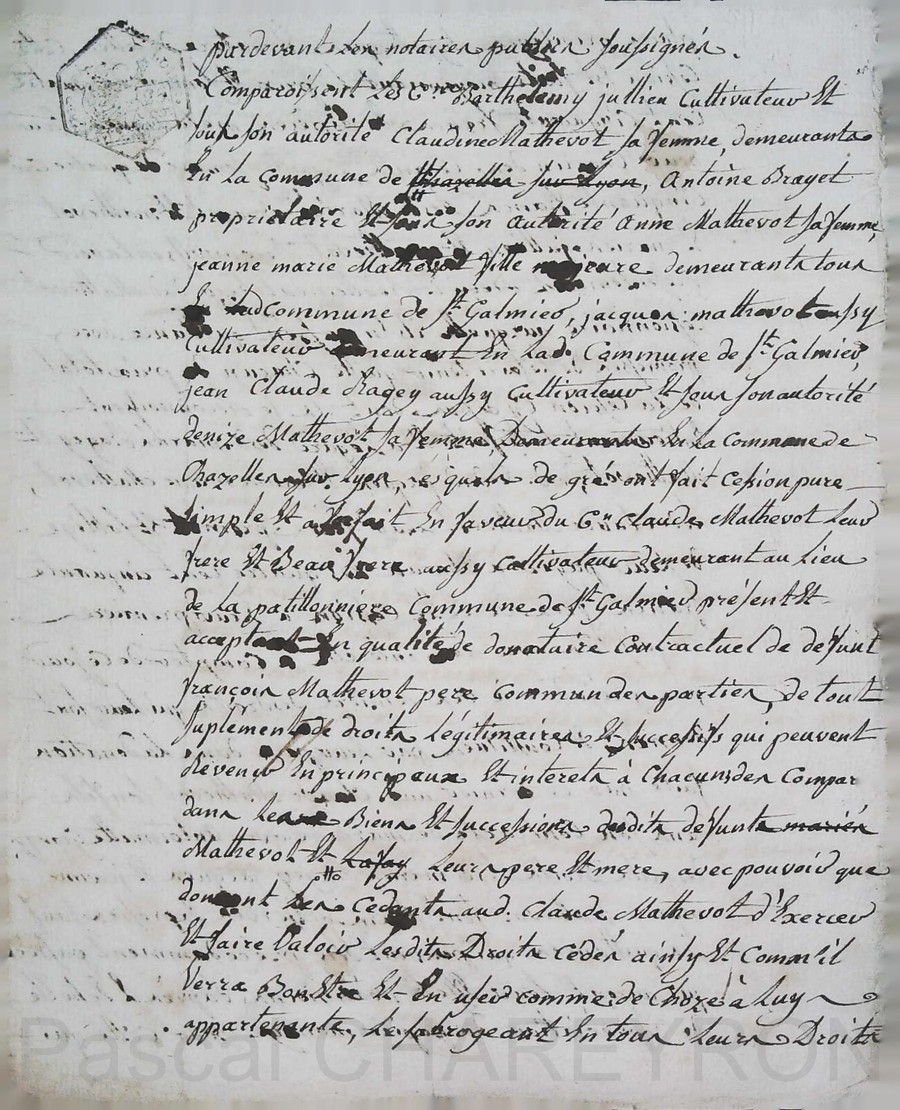 pardevant les notaires publics soussignés
Comparoissent les Cns Barthelemy jullien Cultivateur Et
sous son autorité Claudine Mathevot sa femme, demeurants
En la Commune de Chazelles sur Lyon, Antoine Brayet
proprietaire Et sous son autorité Anne Mathevot sa femme,
jeanne marie Mathevot fille majeure demeurants tous
En lad Commune de St Galmier, jacques mathevot aussy
Cultivateur demeurant En lad. Commune de St Galmier,
jean Claude Ragey aussy Cultivateur Et sous son autorité
denize Mathevot sa femme, Demeurants En la Commune de
Chazelles sur Lyon, lesquels de gré ont fait Cession pure
simple Et a forfait En faveur du Cn Claude Mathevot leur
frere Et Beau frere aussy Cultivateur demeurant au Lieu
de la patillonnière Commune de St Galmier présent Et
acceptant En qualité de donataire Contractuel de défunt
françois Mathevot pere Commun des parties, de tout
suplément de droits Légitimaires Et successifs qui peuvent
Revenir En principeaux Et interets à Chacuns des Compar
dans les Biens Et successions desdits défunts mariés
Mathevot Et Lafay Leurs pere Et mere, avec pouvoir que
donnent les Cédants aud. Claude Mathevot d'Exercer
Et faire Valoir lesdits Droits Cédés ainsy Et Comm'il
Verra Bon Etre Et En user comme de Choze à Luy
appartenante, Le subrogeant En tous Leurs Droits
Pascal CHAREYRON